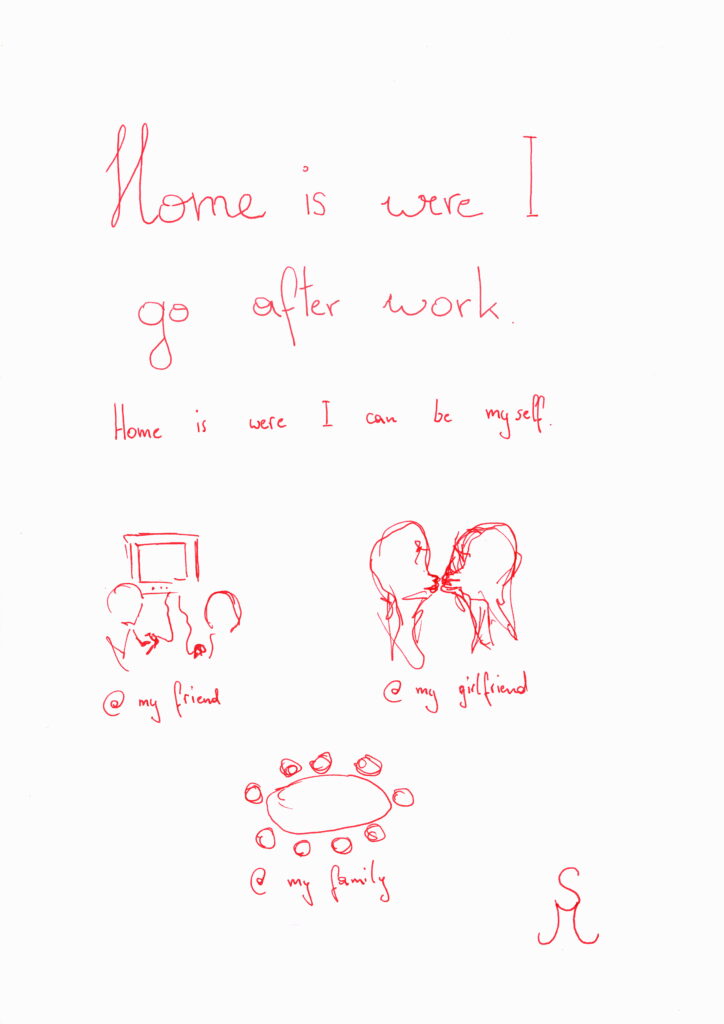 Home is were I
go after work.
Home is were I can be myself.
@ my friend
@ my girlfriend
@ my family